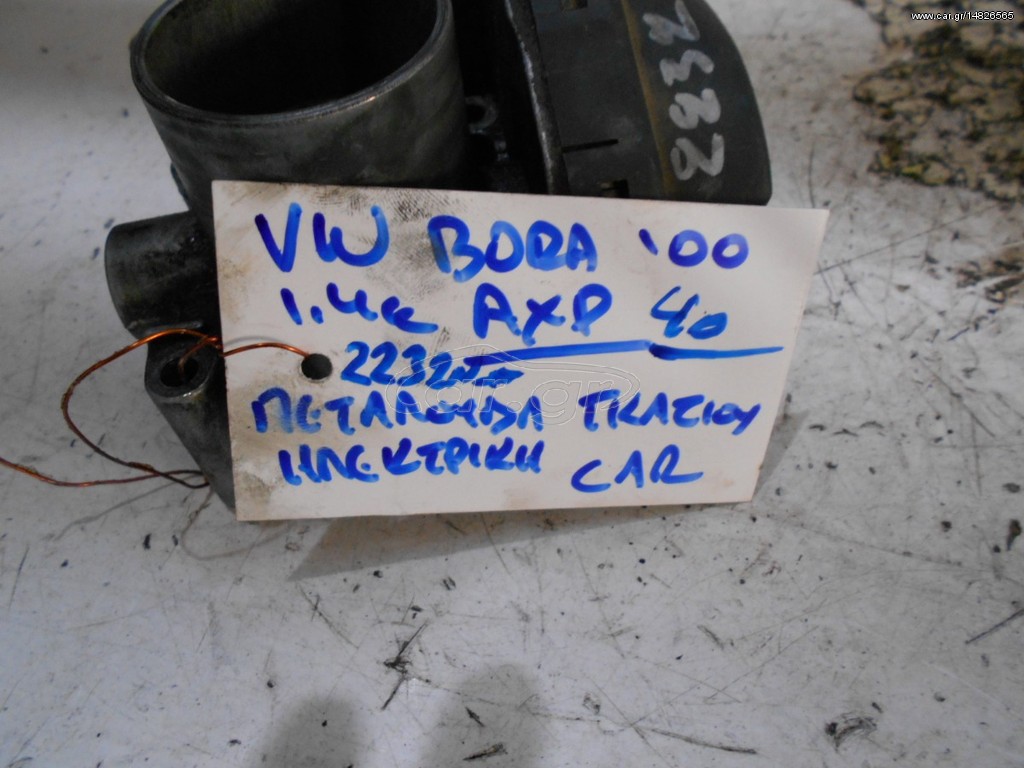 www.car.gr/14826565
2232
VW BORA '00
1.4cc AXP 40
2232
ΠΕΤΑΛΟΥΔΑ ΓΚΑΖΙΟΥ
ΗΛΕΚΤΡΙΚΗ CAR
car.gr